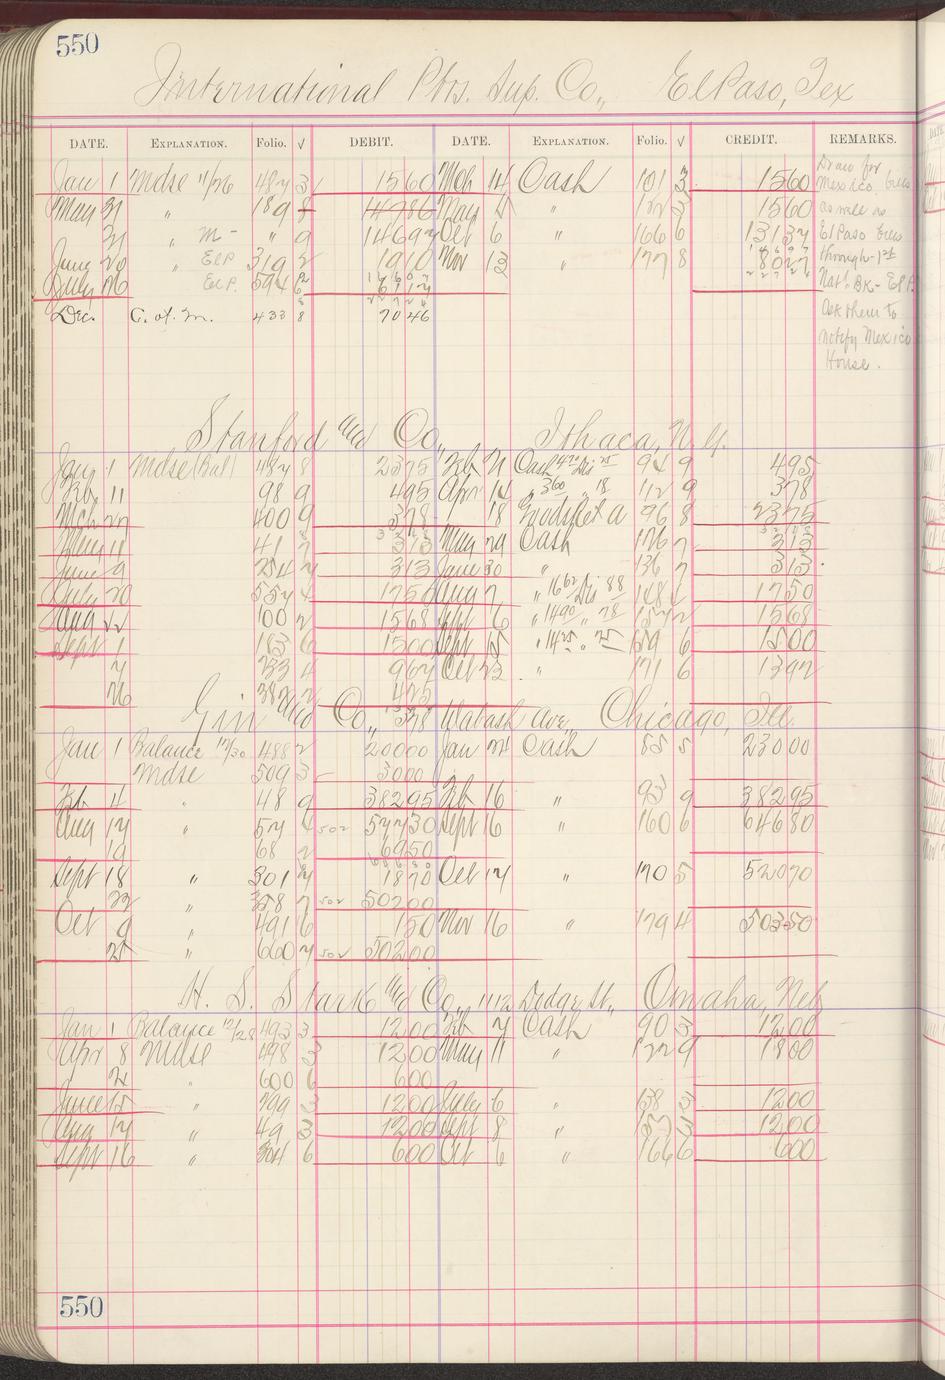 550
International Phts. Sup. Co., El Paso, Tex
DATE. EXPLANATION. Folio. √ DEBIT. DATE. EXPLANATION. Folio. √ CREDIT. REMARKS.
Jan 1 Mdse 11/26 487 3 1560 Mch 14 Cash 101 3 1560 Draw for
Mexico,
May 31 " 189 8 14986 May 4 " 122 3 1560 as well as
31 " M - " 9 14697 Oct 6 " 166 6 13137 El Paso
June 20 " El P 319 2 1910 Nov 13 " 177 8 8027 through 1st
July 16 El P. 594 6717 Nat'l Bk - El P.
Dec. C. of M. 433 8 7046 Ask them to
notify Mexico
House.
Stanford Co., Ithaca, N.Y.
Jany 1 Mdse (Bal) 487 8 2375 Feb 21 Cash 4 70 Dis 25 94 9 495
Feb. 11 98 9 495 Apr 14 " 3 60 " 18 112 9 378
Mch 27 400 9 378 18 96 8 2375
May 11 41 7 313 May 29 Cash 126 7 313
June 9 254 7 313 June 30 " 136 7 313
July 20 557 4 1750 Aug 7 " 16 62 Dis 88 148 1750
Aug 22 100 2 1568 Sept 6 " 14 90 " 78 157 2 1568
Sept 1 183 6 1500 Sept 15 " 14 25 " 75 159 6 1500
7 233 4 967 Oct 23 " 171 6 1392
26 425
Gin Co., 378 Wabash Ave., Chicago, Ill.
Jan 1 Balance 12/30 488 2 20000 Jan 24 Cash 85 5 23000
Mdse 509 3 3000
Feb 4 " 48 9 38295 Feb 16 " 93 9 38295
Aug 17 " 57 4 502 57730 Sept 16 " 160 6 64680
19 68 2 6950
Sept 18 " 301 4 1870 Oct 17 " 170 5 52070
22 " 358 7 502 50200
Oct 9 " 491 6 150 Nov 16 " 179 4 50350
25 " 660 4 502 50200
H. S. Stark Co., 1112 Dodge St., Omaha, Neb
Jan 1 Balance 12/28 493 3 1200 Feb 7 Cash 90 3 1200
Apr 8 Mdse 498 3 1200 May 11 " 122 9 1800
21 " 600 6 600
June 15 " 299 3 1200 July 6 " 138 3 1200
Aug 17 " 49 3 1200 Sept 8 " 157 3 1200
Sept 16 " 304 6 600 Oct 6 " 166 6 600
550